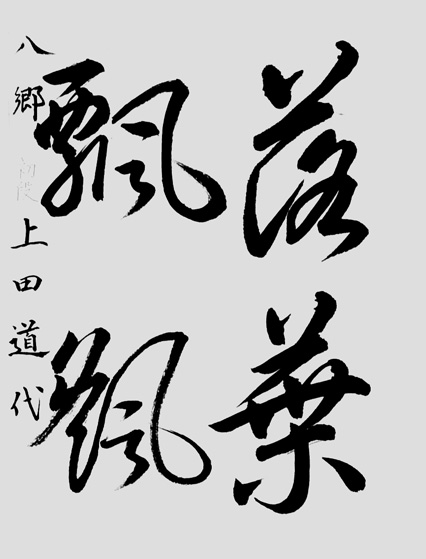 落葉
飄颻
八郷 初段 上田道代